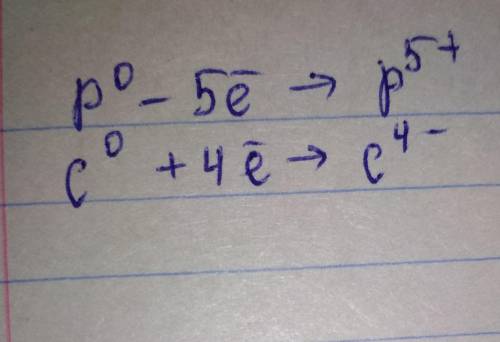 p⁰ − 5ē → p⁵⁺
c⁰ + 4ē → c⁴⁻